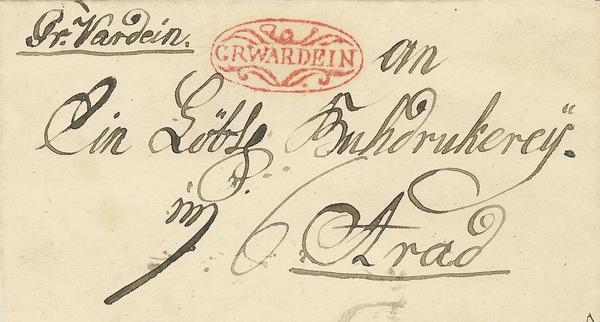 Gr. Vardein.
GRWARDEIN
an
Ein Löbl Buhdrukereÿ.
in
Arad